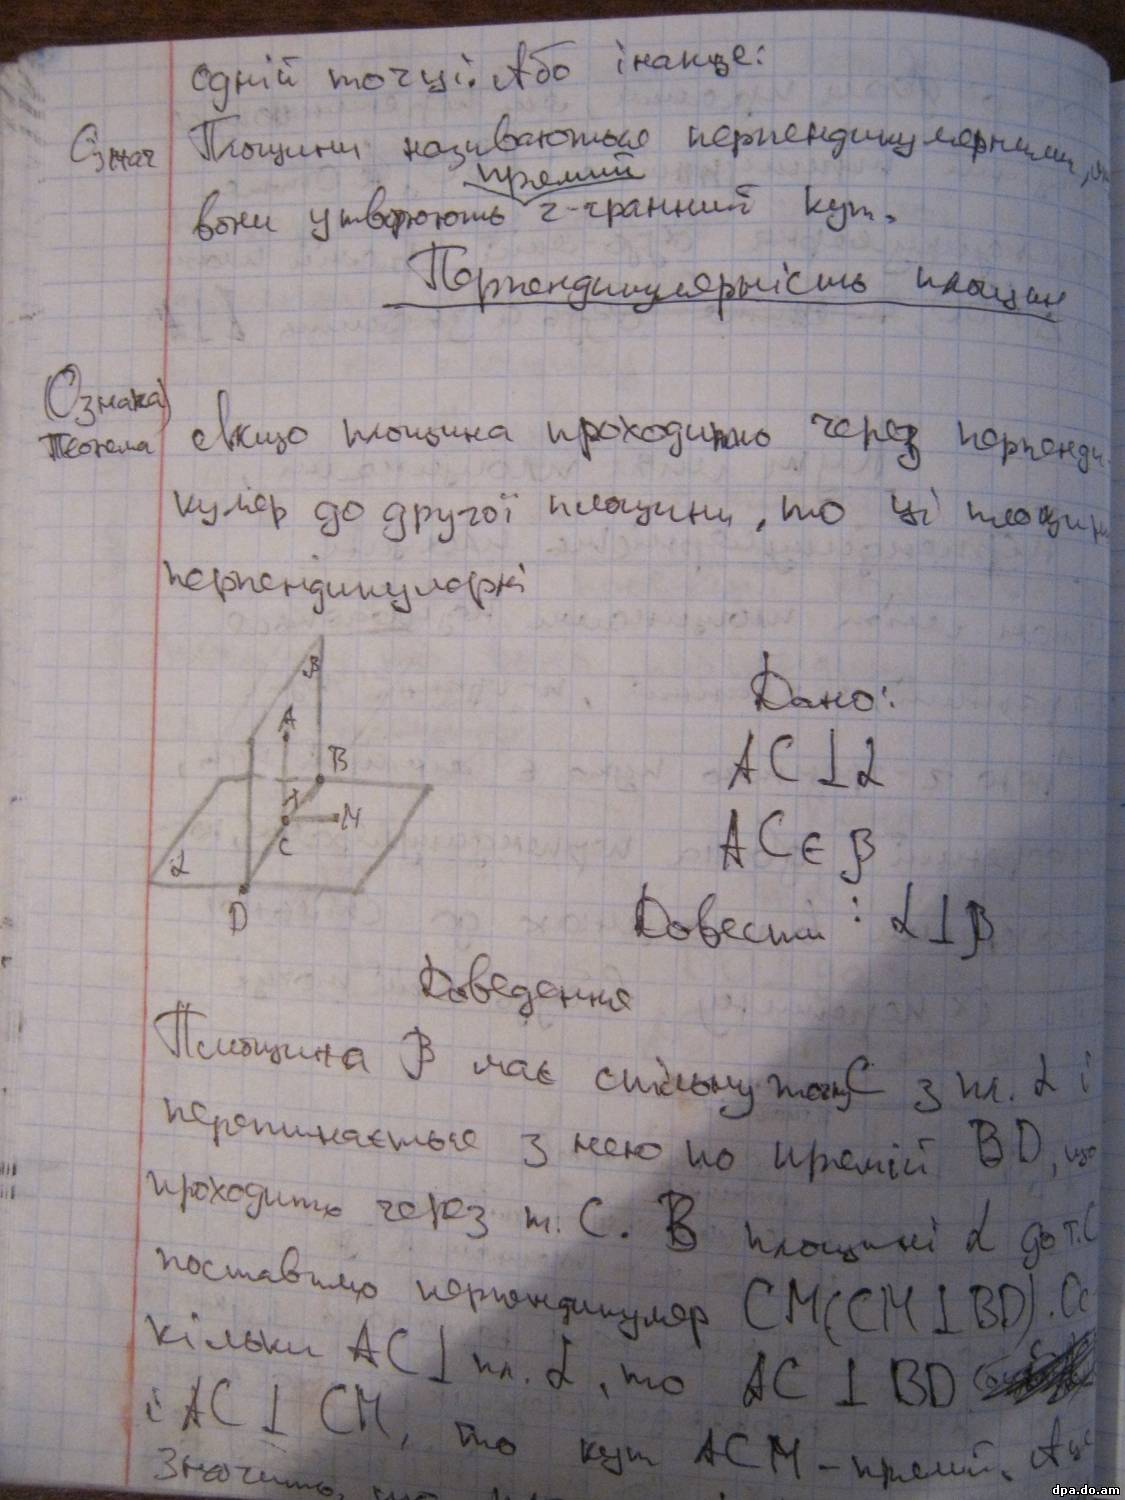 одній точці. Або інакше:
Означ Площини називаються перпендикулярними, як
прямий
вони утворюють 2-гранний кут.
Перпендикулярність площин
(Ознака)
Теорема Якщо площина проходить через перпенди-
куляр до другої площини, то ці площини
перпендикулярні
β
A
B
M
C
α
D
Дано:
AC⊥α
AC є β
Довести: α⊥β
Доведення
Площина β має спільну точку C з пл. α і
перетинається з нею по прямій BD, що
проходить через т. C. В площині α до т.C
поставимо перпендикуляр CM(CM⊥BD). Ос
кільки AC⊥пл.α, то AC⊥BD
і AC⊥CM, то кут ACM-прямий. А це
Значить, що
dpa.do.am